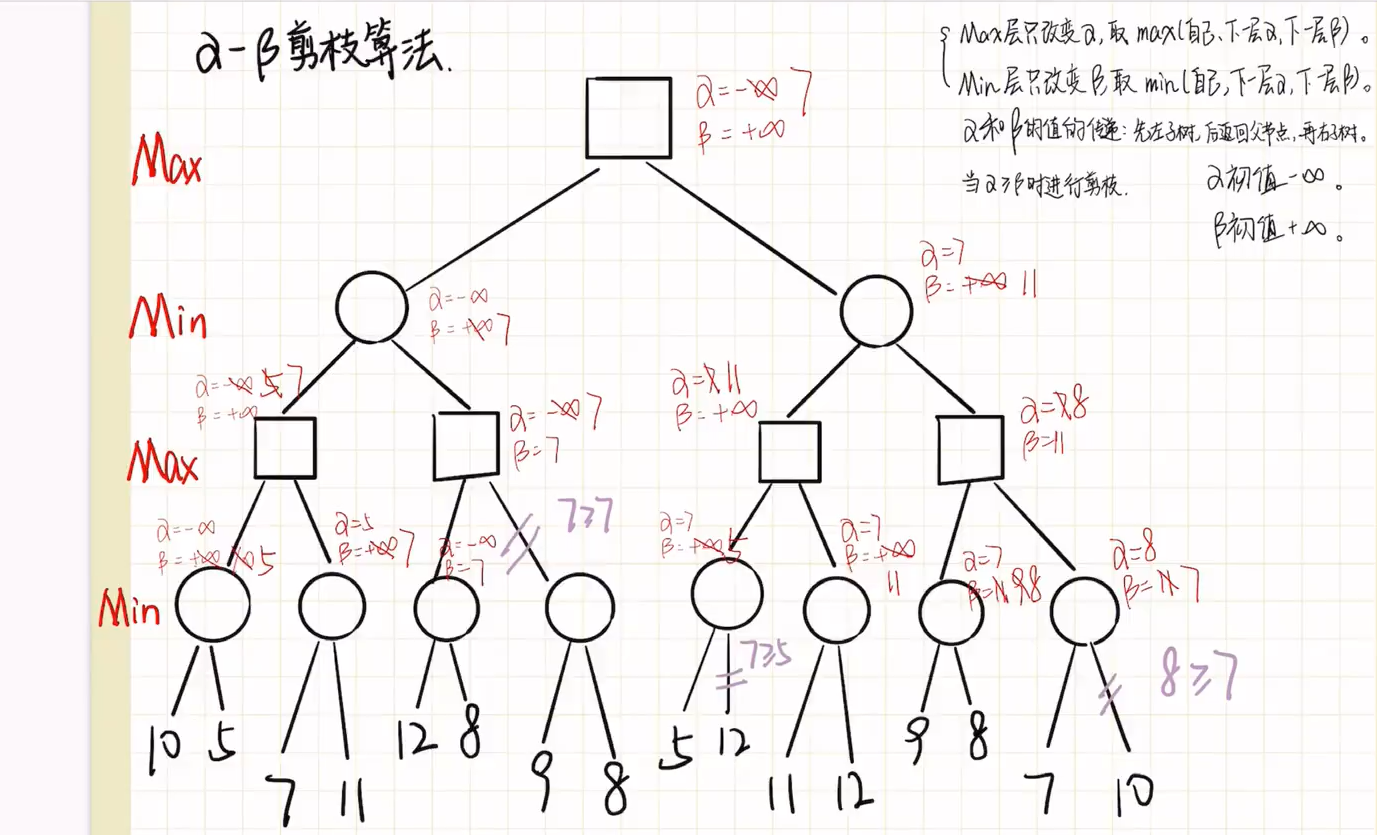 α-β剪枝算法.
Max层只改变α,取max(自己、下一层α,下一层β)。
Min层只改变β,取min(自己,下一层α,下一层β)。
α和β的值的传递:先左子树,后返回父节点,再右子树。
当α≥β时进行剪枝.
α初值-∞。
β初值+∞。
Max
α=-∞ 7
β=+∞
Min
α=-∞
β=+∞ 7
α=7
β=+∞ 11
Max
α=-∞ 5 7
β=+∞
α=-∞ 7
β=7
α=7 11
β=+∞
α=7 8
β=11
7≥7
Min
α=-∞
β=+∞ 10 5
α=5
β=+∞ 7
α=-∞
β=7
α=7
β=+∞ 5
α=7
β=+∞
11
α=7
β=11 9 8
α=8
β=11 7
7≥5
8≥7
10 5 7 11 12 8 9 8 5 12 11 12 9 8 7 10